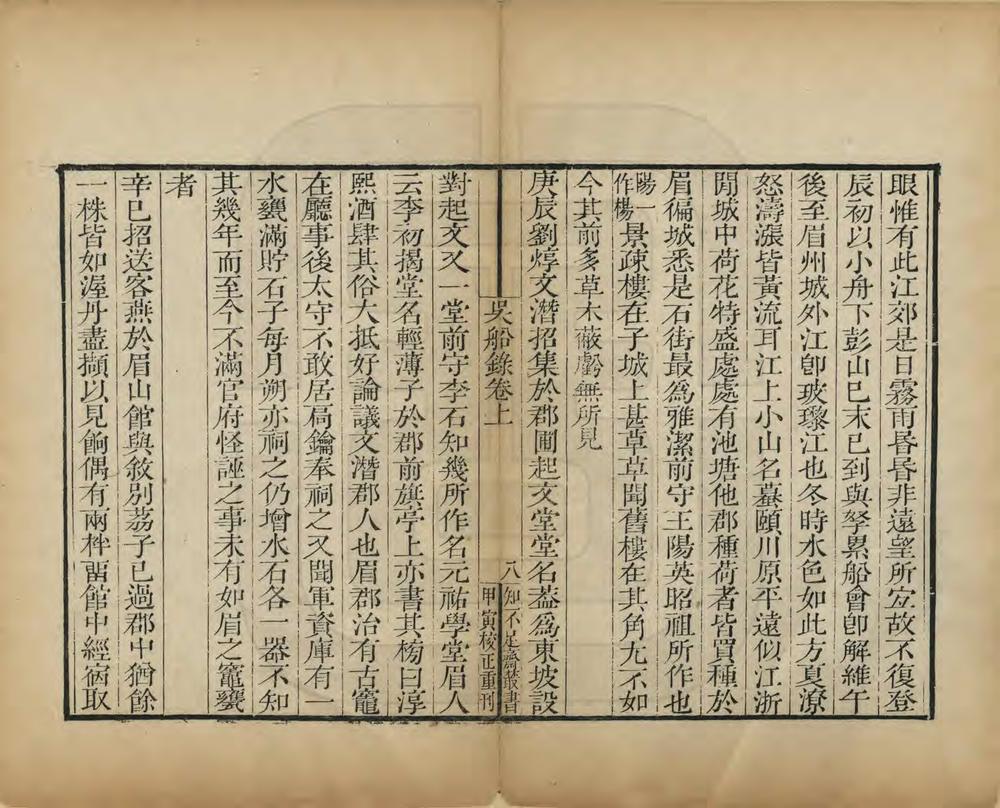 眼惟有此江郊是日霧雨昏昏非遠望所宜故不復登
辰初以小舟下彭山巳末已到與孥累船會卽解維午
後至眉州城外江卽玻瓈江也冬時水色如此方夏潦
怒濤漲皆黃流耳江上小山名蟇頤川原平遠似江浙
閒城中荷花特盛處處有池塘他郡種荷者皆買種於
眉徧城悉是石街最爲雅潔前守王陽英昭祖所作也
陽一作楊景疎樓在子城上甚草草聞舊樓在其角尤不如
今其前多草木蔽虧無所見
庚辰劉焞文潛招集於郡圃起文堂堂名蓋爲東坡設
吳船錄卷上
八
知不足齋叢書
甲寅校正重刊
對起文又一堂前守李石知幾所作名元祐學堂眉人
云李初揭堂名輕薄子於郡前旗亭上亦書其榜曰淳
熙酒肆其俗大抵好論議文潛郡人也眉郡治有古竈
在廳事後太守不敢居扃鑰奉祠之又聞軍資庫有一
水甕滿貯石子每月朔亦祠之仍增水石各一器不知
其幾年而至今不滿官府怪誕之事未有如眉之竈甕
者
辛巳招送客燕於眉山館與敘別荔子已過郡中猶餘
一株皆如渥丹盡擷以見餉偶有兩柈留館中經宿取